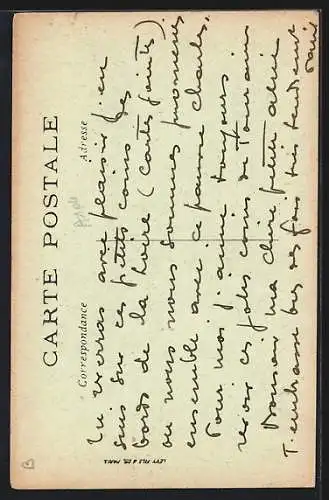 CARTE POSTALE
Correspondance
Adresse
Tu verras avec plaisir j'en
suis sur ces petits coins des
bords de la Loire (cartes jointes)
où nous nous sommes promenés
ensemble avec ce pauvre Charles.
Pour moi j'aime toujours
revoir ces jolis coins de Touraine
Bonsoir ma chère petite
T'embrasse bes des fois très tendrement
LEVY FILS & CIE. PARIS